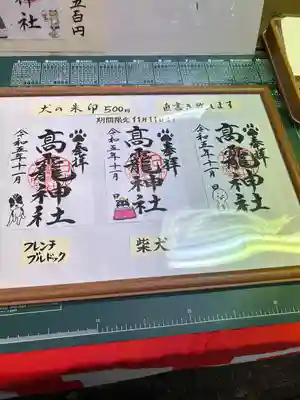 神社
五百円
犬の朱印 500円 直書き致します
期間限定 11月11日
奉拝
高龍神社
令和五年十一月 日
奉拝
高龍神社
令和五年十一月 日
奉拝
高龍神社
令和五年十一月 日
フレンチ
ブルドック
柴犬